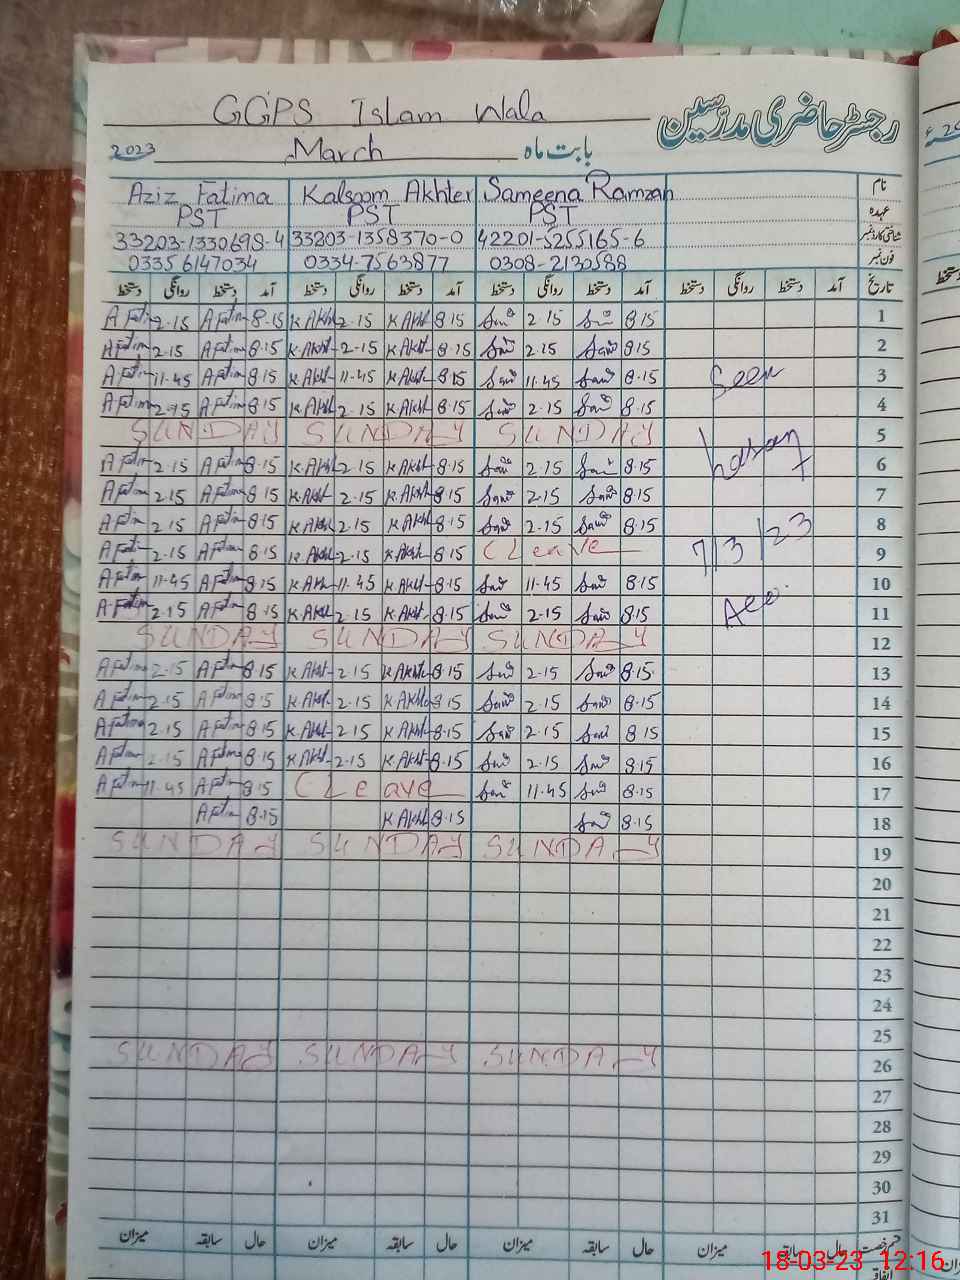 GGPS Islam Wala
رجسٹر حاضری مدرسین
2023 March بابت ماہ
Aziz Fatima Kalsoom Akhter Sameena Ramzan نام
PST PST PST عہدہ
33203-1330698-4 33203-1358370-0 42201-5255165-6 شناختی کارڈ نمبر
0335 6147034 0334-7563877 0308-2130588 فون نمبر
دستخط روانگی دستخط آمد دستخط روانگی دستخط آمد دستخط روانگی دستخط آمد دستخط روانگی دستخط آمد تاریخ
A Fatim 2.15 A Fatim 8.15 K Akht 2.15 K Akht 8.15 2.15 8.15 1
A Fatim 2.15 A Fatim 8.15 K.Akht 2.15 K Akht 8.15 2.15 8.15 2
A Fatim 11.45 A Fatim 8.15 K Akht 11.45 K Akht 8.15 11.45 8.15 Seen 3
A Fatim 2.15 A Fatim 8.15 K Akht 2.15 K Akht 8.15 2.15 8.15 4
SUNDAY SUNDAY SUNDAY 5
A Fatim 2.15 A Fatim 8.15 K.Akht 2.15 K Akht 8.15 2.15 8.15 6
A Fatim 2.15 A Fatim 8.15 K.Akht 2.15 K Akht 8.15 2.15 8.15 7
A Fatim 2.15 A Fatim 8.15 K Akht 2.15 K Akht 8.15 2.15 8.15 8
A Fatim 2.15 A Fatim 8.15 K.Akht 2.15 K Akht 8.15 C Leave 7/3/23 9
A Fatim 11.45 A Fatim 8.15 K Akht 11.45 K Akht 8.15 11.45 8.15 10
A Fatim 2.15 A Fatim 8.15 K Akht 2.15 K Akht 8.15 2.15 8.15 11
SUNDAY SUNDAY SUNDAY 12
A Fatim 2.15 A Fatim 8.15 K Akht 2.15 K Akht 8.15 2.15 8.15 13
A Fatim 2.15 A Fatim 8.15 K Akht 2.15 K Akht 8.15 2.15 8.15 14
A Fatima 2.15 A Fatim 8.15 K Akht 2.15 K Akht 8.15 2.15 8.15 15
A Fatima 2.15 A Fatima 8.15 K Akht 2.15 K Akht 8.15 2.15 8.15 16
A Fatim 11.45 A Fatim 8.15 C Leave 11.45 8.15 17
A Fatim 8.15 K Akht 8.15 8.15 18
SUNDAY SUNDAY SUNDAY 19
20
21
22
23
24
25
SUNDAY SUNDAY SUNDAY 26
27
28
29
30
31
میزان سابقہ حال میزان سابقہ حال میزان سابقہ حال میزان سابقہ حال قسم رخصت
18-03-23 12:16